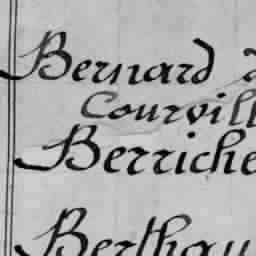 Bernard d
Courvill
Berriche
Berthau